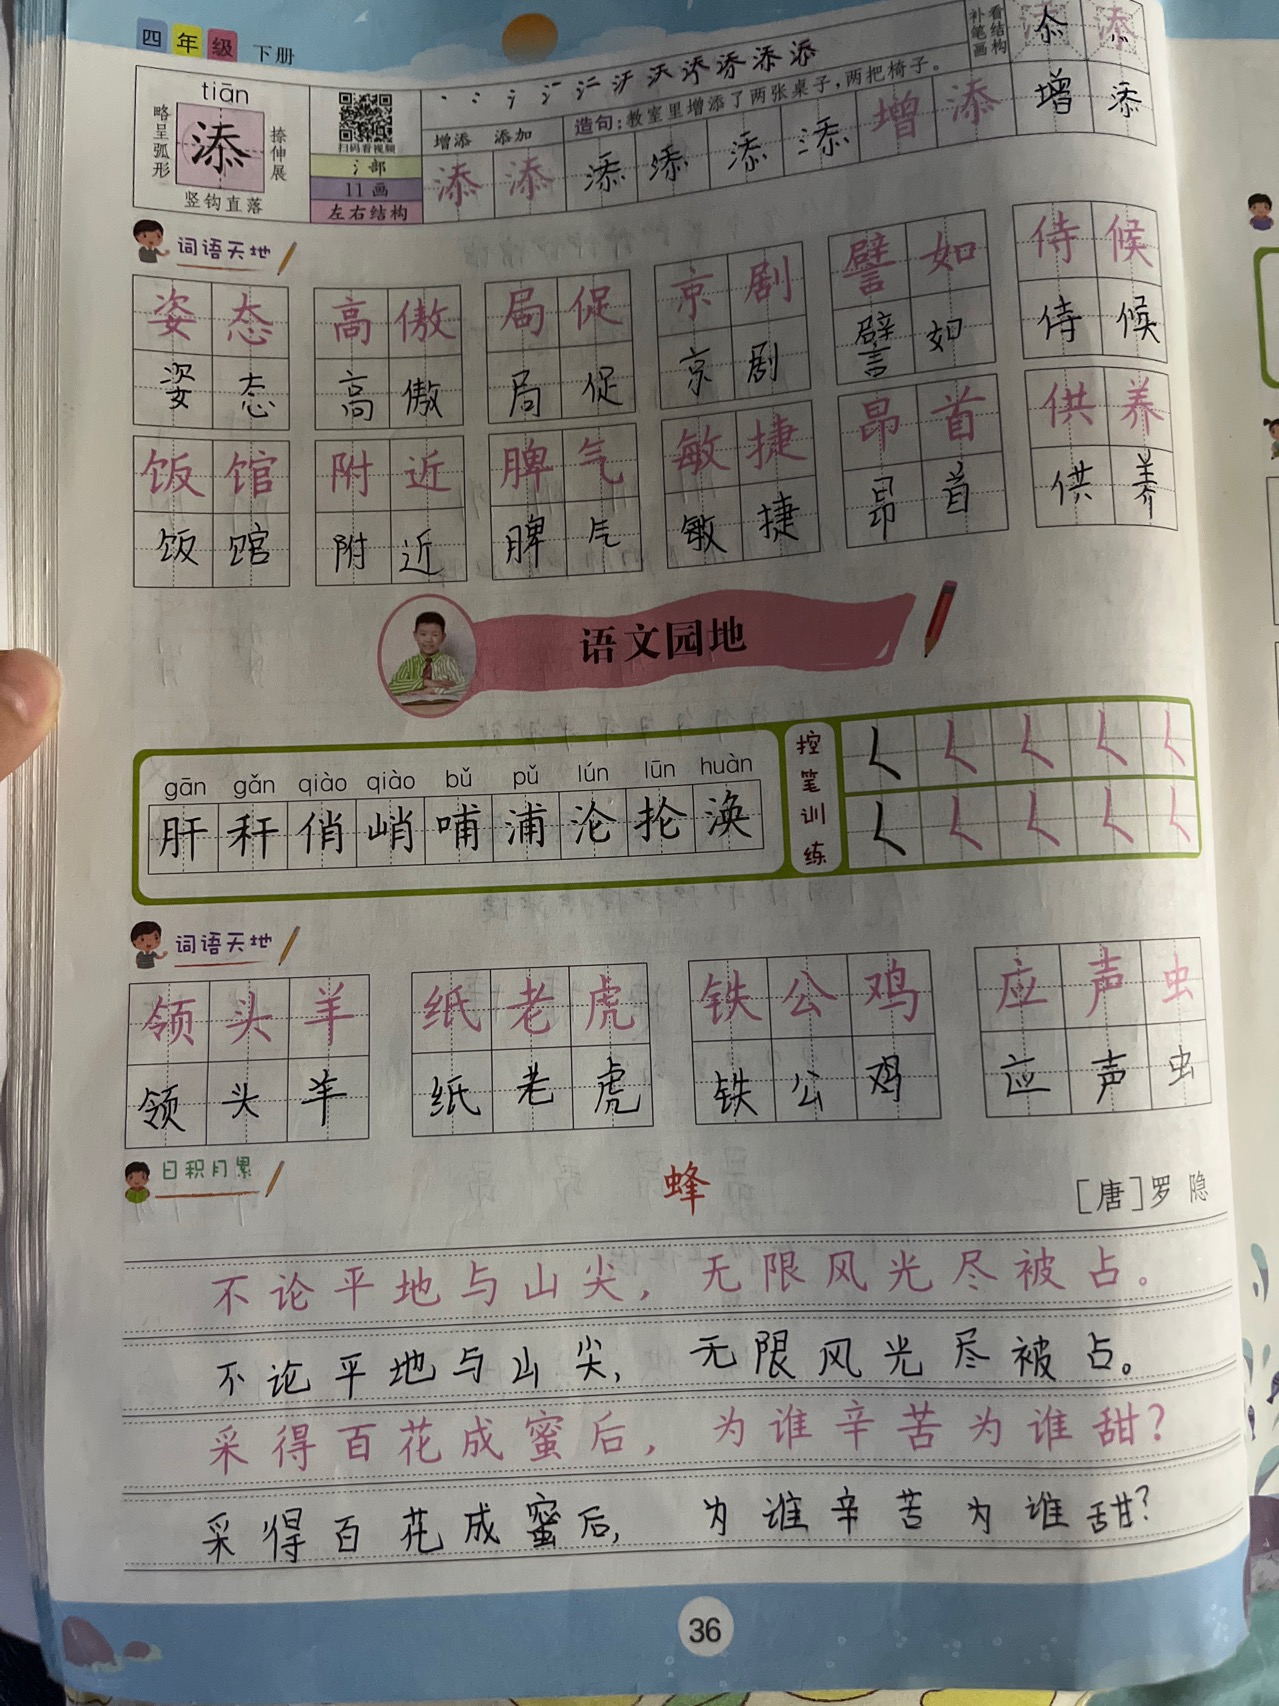 四年级 下册
tiān
略呈弧形
添
捺伸展
竖钩直落
扫码看视频
氵部
11画
左右结构
增添 添加
造句：教室里增添了两张桌子，两把椅子。
添 添 添 添 添 添 增 添
看结构
补笔画
增 添
词语天地
姿态 高傲 局促 京剧 譬如 侍候
姿态 高傲 局促 京剧 譬如 侍候
饭馆 附近 脾气 敏捷 昂首 供养
饭馆 附近 脾气 敏捷 昂首 供养
语文园地
gān gǎn qiào qiào bǔ pǔ lún lūn huàn
肝 秆 俏 峭 哺 浦 沦 抡 涣
控笔训练
词语天地
领头羊 纸老虎 铁公鸡 应声虫
领头羊 纸老虎 铁公鸡 应声虫
日积月累
蜂
［唐］罗隐
不论平地与山尖，无限风光尽被占。
不论平地与山尖，无限风光尽被占。
采得百花成蜜后，为谁辛苦为谁甜？
采得百花成蜜后，为谁辛苦为谁甜？
36